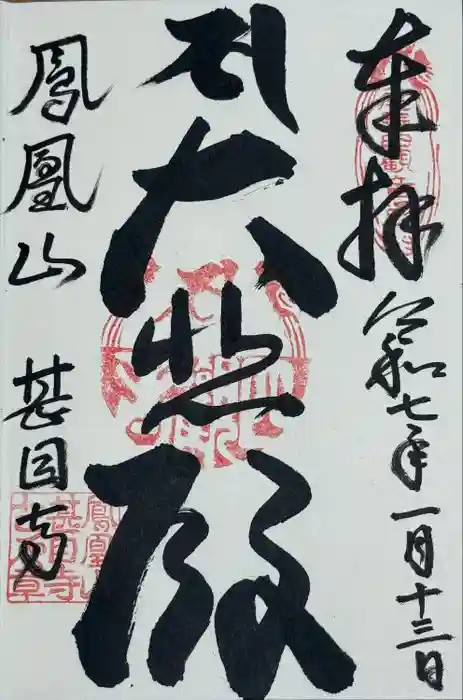 奉拝 令和七年一月十三日
大悲殿
鳳凰山 甚目寺
鳳凰山
甚目寺